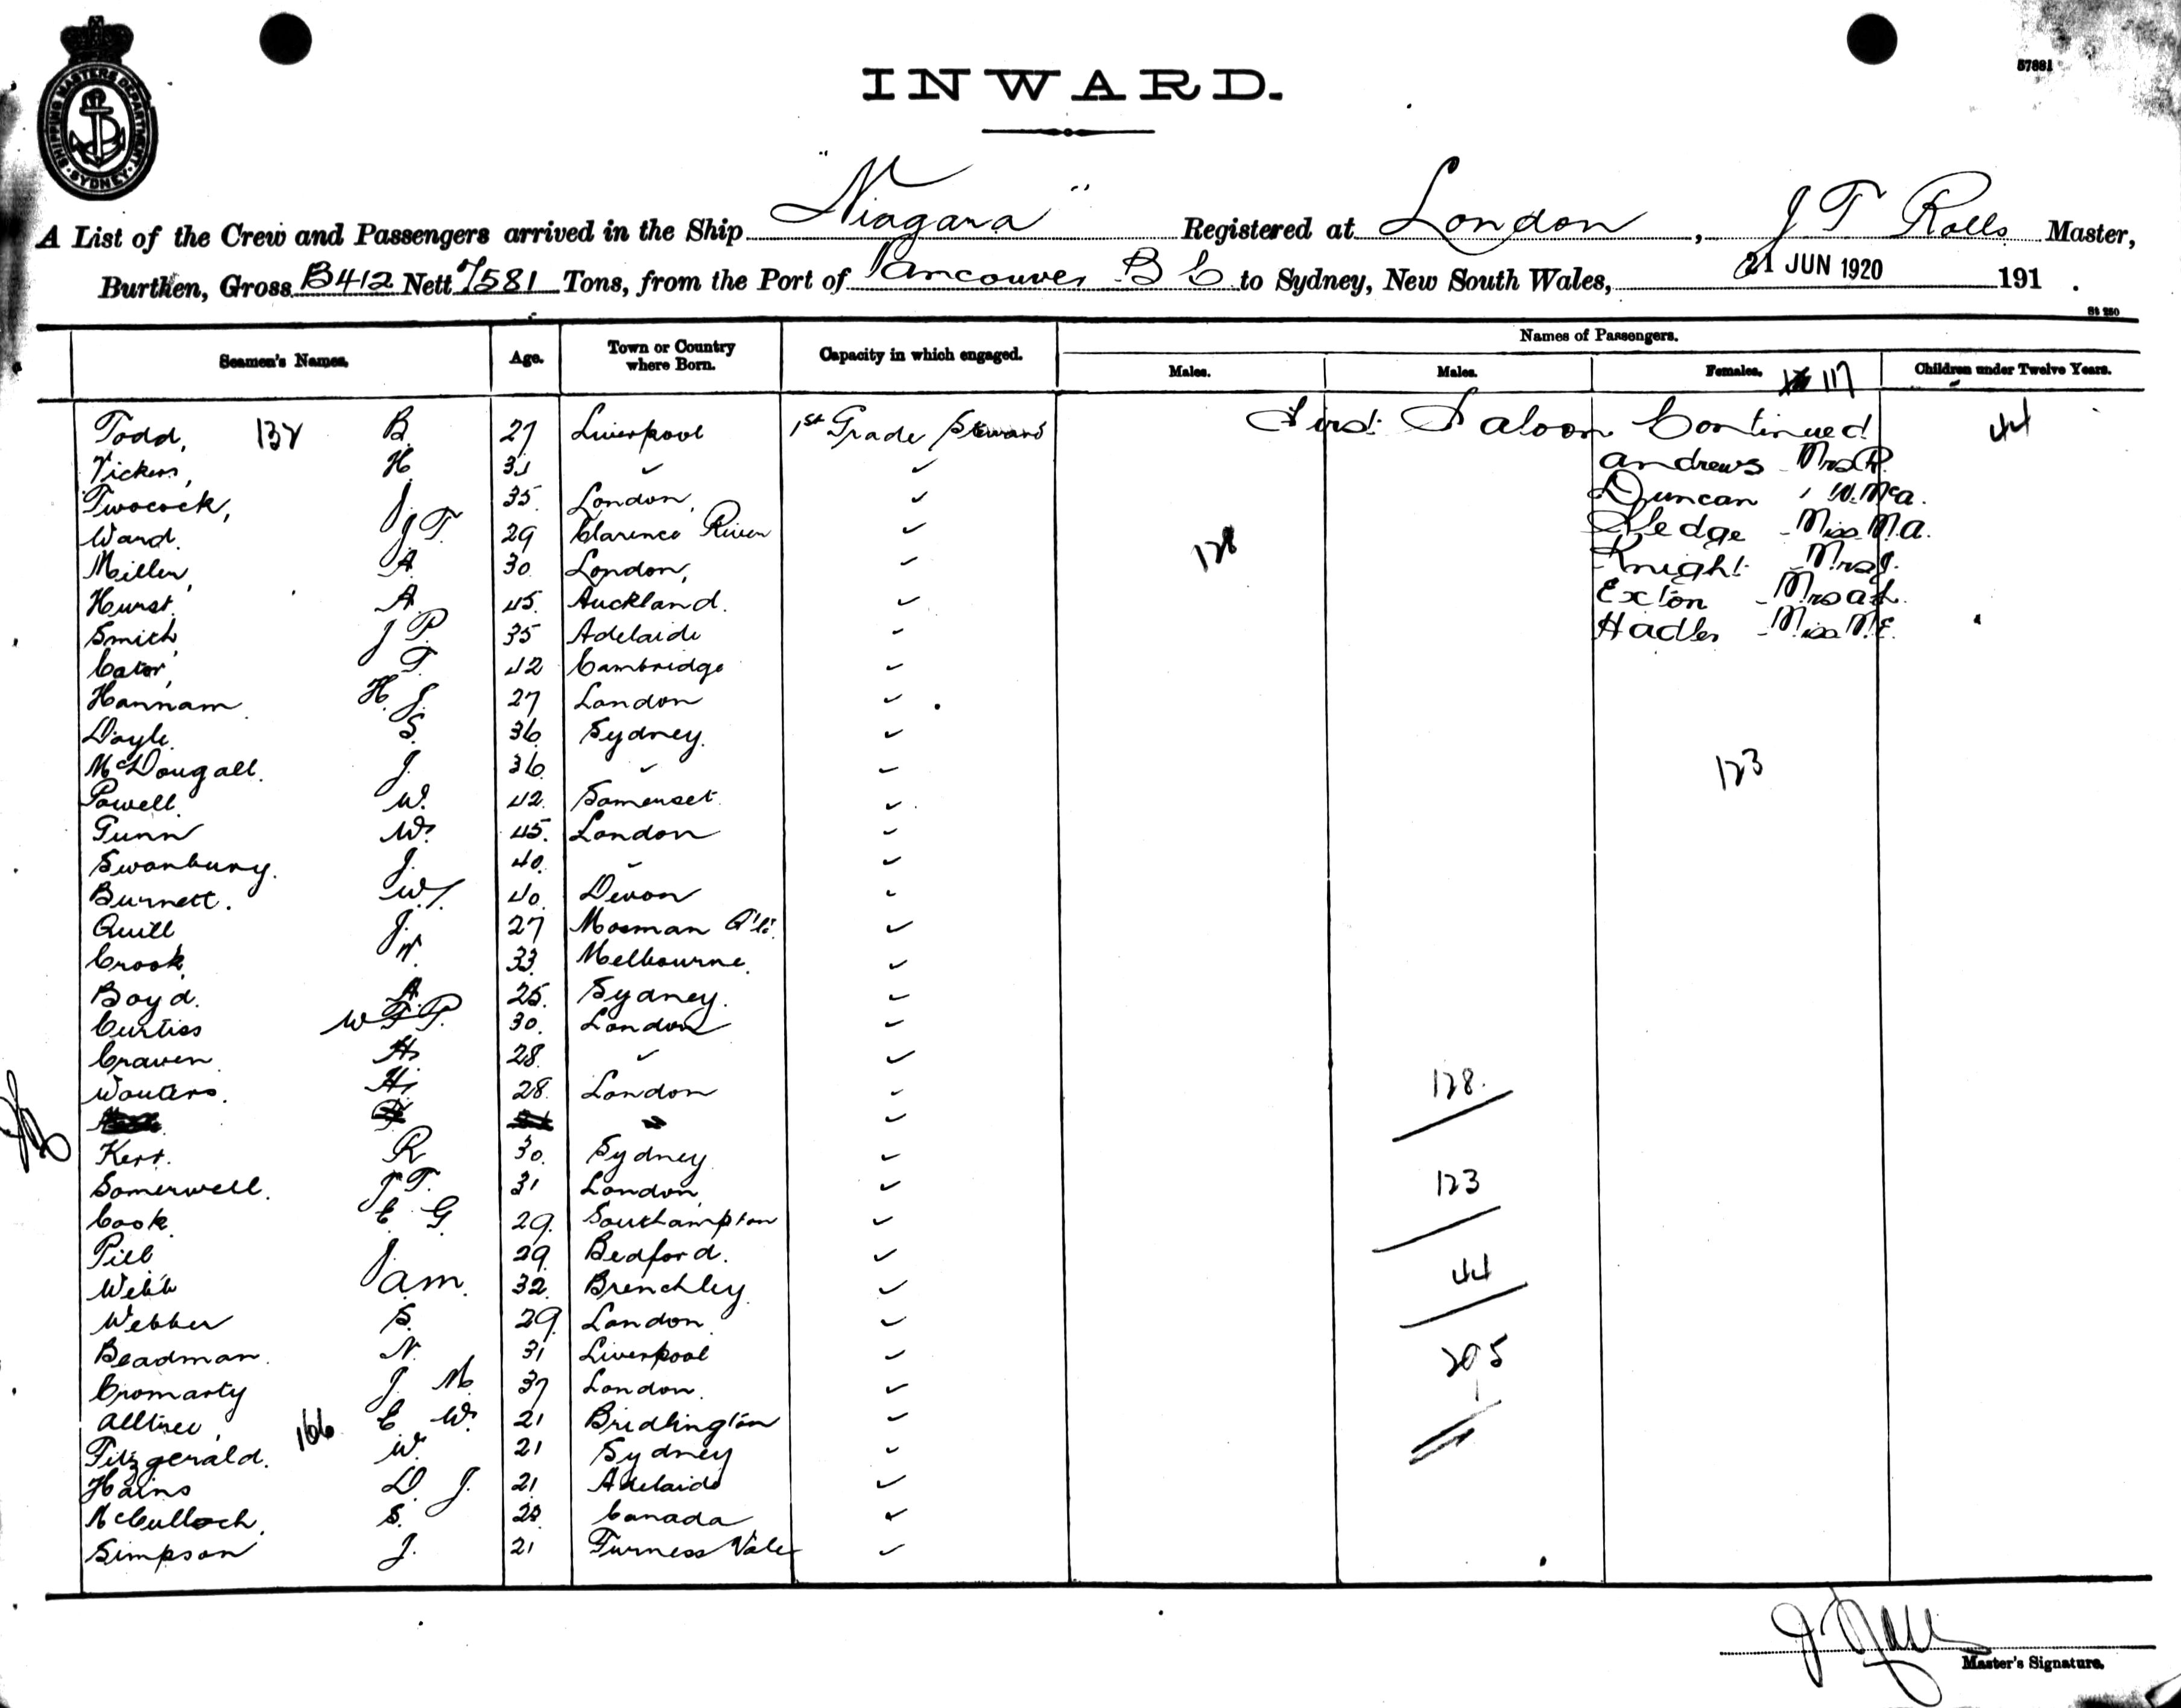 SHIPPING MASTERS DEPARTMENT SYDNEY
57881
INWARD.
A List of the Crew and Passengers arrived in the Ship "Niagara" Registered at London, J T Rolls Master,
Burthen, Gross 13412 Nett 7581 Tons, from the Port of Vancouver B C to Sydney, New South Wales, 21 JUN 1920 191 .
Seamen's Names. Age. Town or Country where Born. Capacity in which engaged. Names of Passengers.
Males. Males. Females. 117 Children under Twelve Years.
First Saloon Continued 44
Todd, 132 B. 27 Liverpool 1st Grade Steward
Vickers, H. 31 ✓ ✓ Andrews Mrs R.
Twocock, J. 35 London, ✓ Duncan " W. McA.
Ward. J T. 29 Clarence River ✓ 128 Sledge - Miss M.A.
Miller, A. 30 London, ✓ Knight - Mrs J.
Hurst, A 45. Auckland. ✓ Exton - Mrs A L.
Smith, J P. 35 Adelaide ✓ Hadler - Miss M.E.
Cator, T. 42 Cambridge ✓
Hannam. H. J. 27 London ✓
Doyle. S. 36 Sydney. ✓
McDougall. J. 36 ✓ ✓ 123
Powell. W. 42. Somerset ✓
Gunn W. 45. London ✓
Swanbury. J. 40. ✓ ✓
Burnett. W. J. 40. Devon ✓
Quill J. 27 Mosman ✓
Crook. 33. Melbourne. ✓
Boyd. A. 25. Sydney. ✓
Curtiss W F P. 30. London ✓
Craven. H. 28. ✓ ✓
Wouters. H. 28. London ✓ 128.
Kerr. R 30. Sydney ✓
Somerwell. J T. 31 London ✓ 123
Cook. C. G. 29. Southampton ✓
Pill J. 29 Bedford. ✓
Webb J A M. 32. Brenchley. ✓ 44
Webber S. 29. London. ✓
Beadman. N. 31 Liverpool ✓
Cromarty J. M. 37 London. ✓ 295
Alltree, 166 C W. 21 Bridlington ✓
Fitzgerald. W. 21 Sydney ✓
Hains D. J. 21. Adelaide ✓
McCulloch. S. Canada ✓
Simpson J. 21 Furness Vale ✓
Master's Signature.